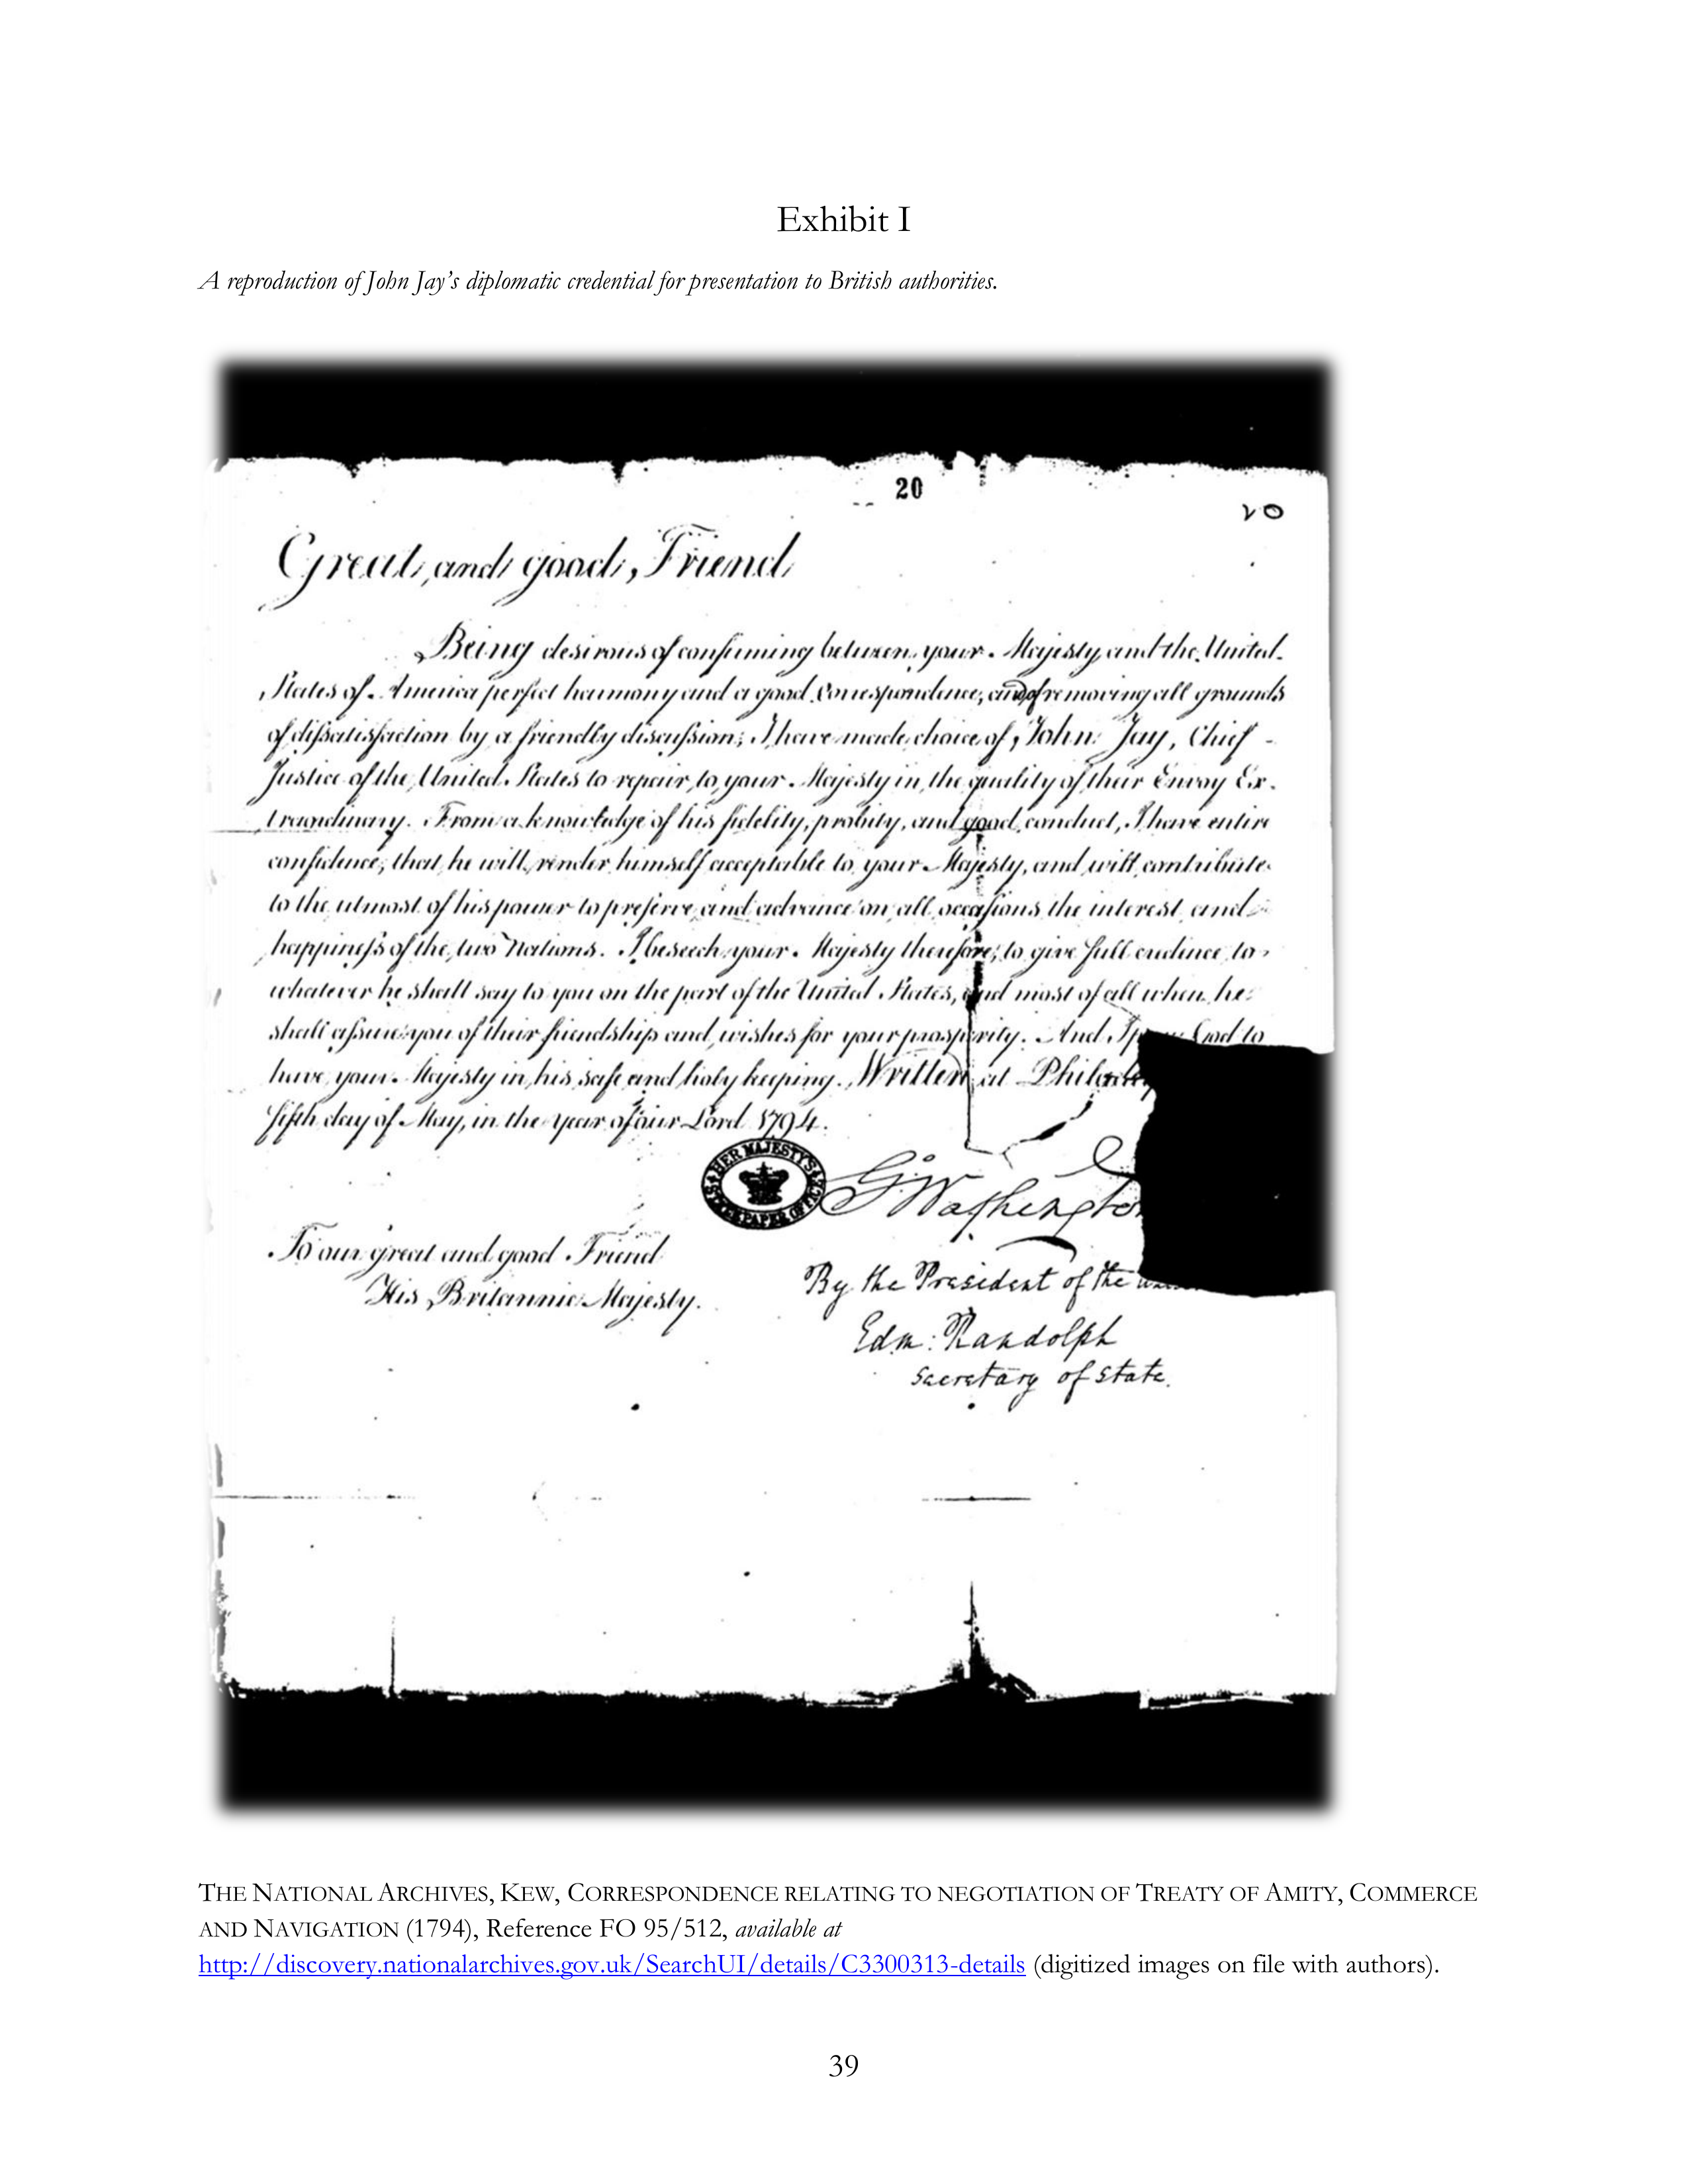 Exhibit I
A reproduction of John Jay's diplomatic credential for presentation to British authorities.
20
20
Great and good Friend
Being desirous of confirming between your Majesty and the United
States of America perfect harmony and a good correspondence, and of removing all grounds
of dissatisfaction by a friendly discussion; I have made choice of John Jay, Chief
Justice of the United States to repair to your Majesty in the quality of their Envoy Ex-
traordinary. From a knowledge of his fidelity, probity, and good conduct, I have entire
confidence, that he will render himself acceptable to your Majesty, and will contribute
to the utmost of his power to preserve and advance on all occasions the interest and
happiness of the two Nations. I beseech your Majesty therefore, to give full credence to
whatever he shall say to you on the part of the United States, and most of all when he
shall assure you of their friendship and wishes for your prosperity. And I God to
have your Majesty in his safe and holy keeping. Written at
fifth day of May, in the year of our Lord 1794.
HER MAJESTY'S STATE PAPER OFFICE
G:Washington
To our great and good Friend
His Britannic Majesty.
By the President of the
Edm: Randolph
Secretary of State.
THE NATIONAL ARCHIVES, KEW, CORRESPONDENCE RELATING TO NEGOTIATION OF TREATY OF AMITY, COMMERCE
AND NAVIGATION (1794), Reference FO 95/512, available at
http://discovery.nationalarchives.gov.uk/SearchUI/details/C3300313-details (digitized images on file with authors).
39